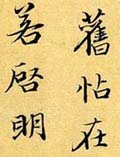 舊帖在
若啓明